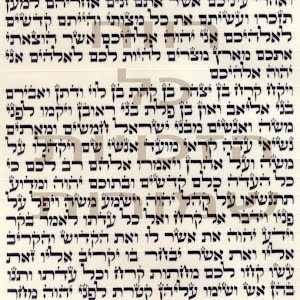 אשר אתם זנים אחריהם למען
תזכרו ועשיתם את כל מצותי והייתם קדשים
לאלהיכם אני יהוה אלהיכם אשר הוצאתי
אתכם מארץ מצרים להיות לכם לאלהים אני
יהוה אלהיכם
ויקח קרח בן יצהר בן קהת בן לוי ודתן ואבירם
בני אליאב ואון בן פלת בני ראובן ויקמו לפני
משה ואנשים מבני ישראל חמשים ומאתים
נשיאי עדה קראי מועד אנשי שם ויקהלו על
משה ועל אהרן ויאמרו אלהם רב לכם כי כל
העדה כלם קדשים ובתוכם יהוה ומדוע
תתנשאו על קהל יהוה וישמע משה ויפל על
פניו וידבר אל קרח ואל כל עדתו לאמר בקר
וידע יהוה את אשר לו ואת הקדוש והקריב
אליו ואת אשר יבחר בו יקריב אליו זאת
עשו קחו לכם מחתות קרח וכל עדתו ותנו
בהן אש ושימו עליהן קטרת לפני יהוה מחר
כל
הזכויות
שמורות